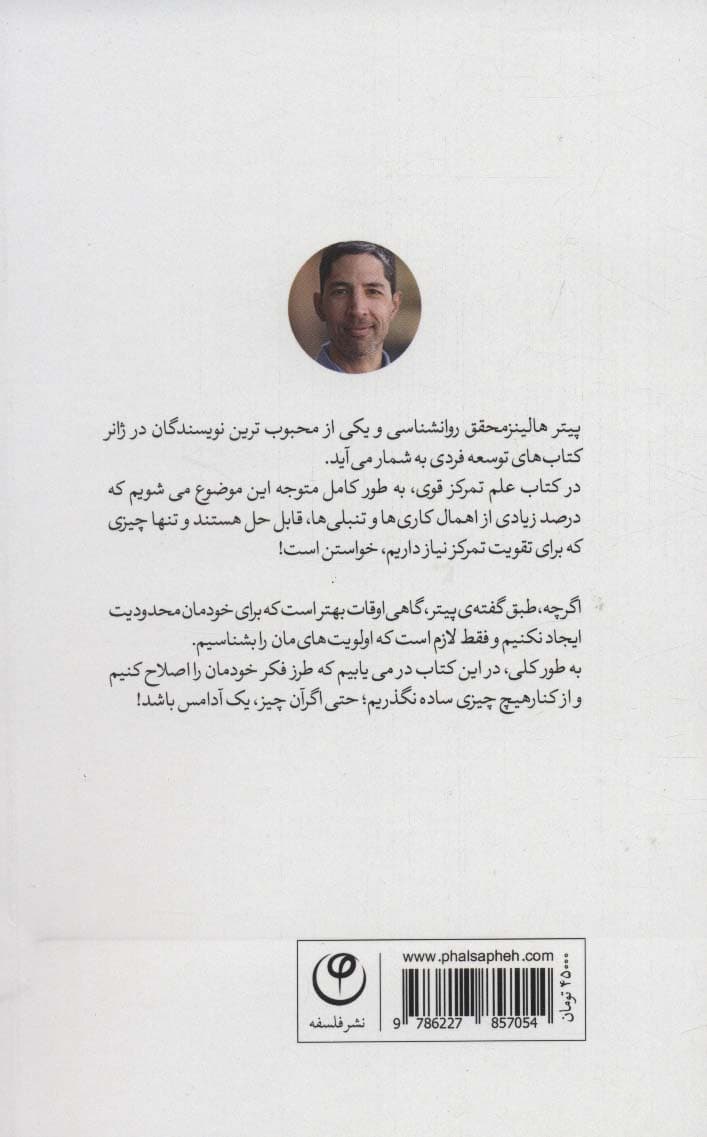 پیتر هالینزمحقق روانشناسی و یکی از محبوب ترین نویسندگان در ژانر
کتاب‌های توسعه فردی به شمار می‌آید.
در کتاب علم تمرکز قوی، به طور کامل متوجه این موضوع می شویم که
درصد زیادی از اهمال کاری‌ها و تنبلی‌ها، قابل حل هستند و تنها چیزی
که برای تقویت تمرکز نیاز داریم، خواستن است!
اگرچه، طبق گفته‌ی پیتر، گاهی اوقات بهتر است که برای خودمان محدودیت
ایجاد نکنیم و فقط لازم است که اولویت‌های مان را بشناسیم.
به طور کلی، در این کتاب در می یابیم که طرز فکر خودمان را اصلاح کنیم
و از کنار هیچ چیزی ساده نگذریم؛ حتی اگر آن چیز، یک آدامس باشد!
www.phalsapheh.com
9 786227 857054
۴۵۰۰۰ تومان
نشر فلسفه